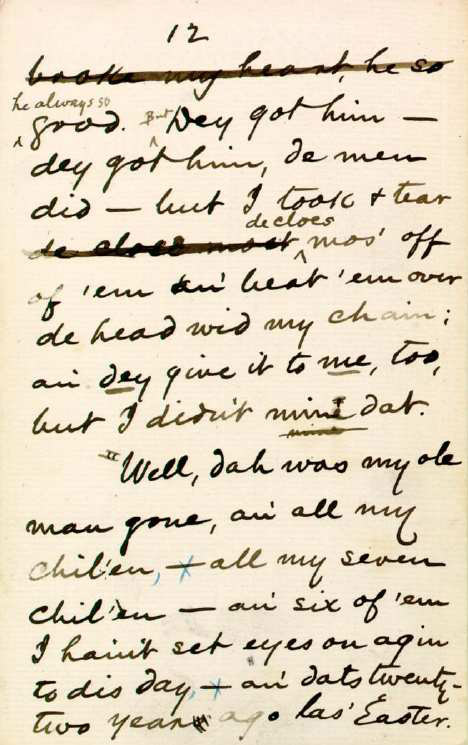 12
broke my heart, he so
he always so
good. But Dey got him —
dey got him, de men
did — but I took & tear
de cloes
de cloes most mos' off
of 'em an' beat 'em over
de head wid my chain;
an' dey give it to me, too,
but I didn't mine dat.
"Well, dah was my ole
man gone, an' all my
chil'en, — all my seven
chil'en — an' six of 'em
I hain't set eyes on agin
to dis day, — an' dats twenty-
two year ago las' Easter.